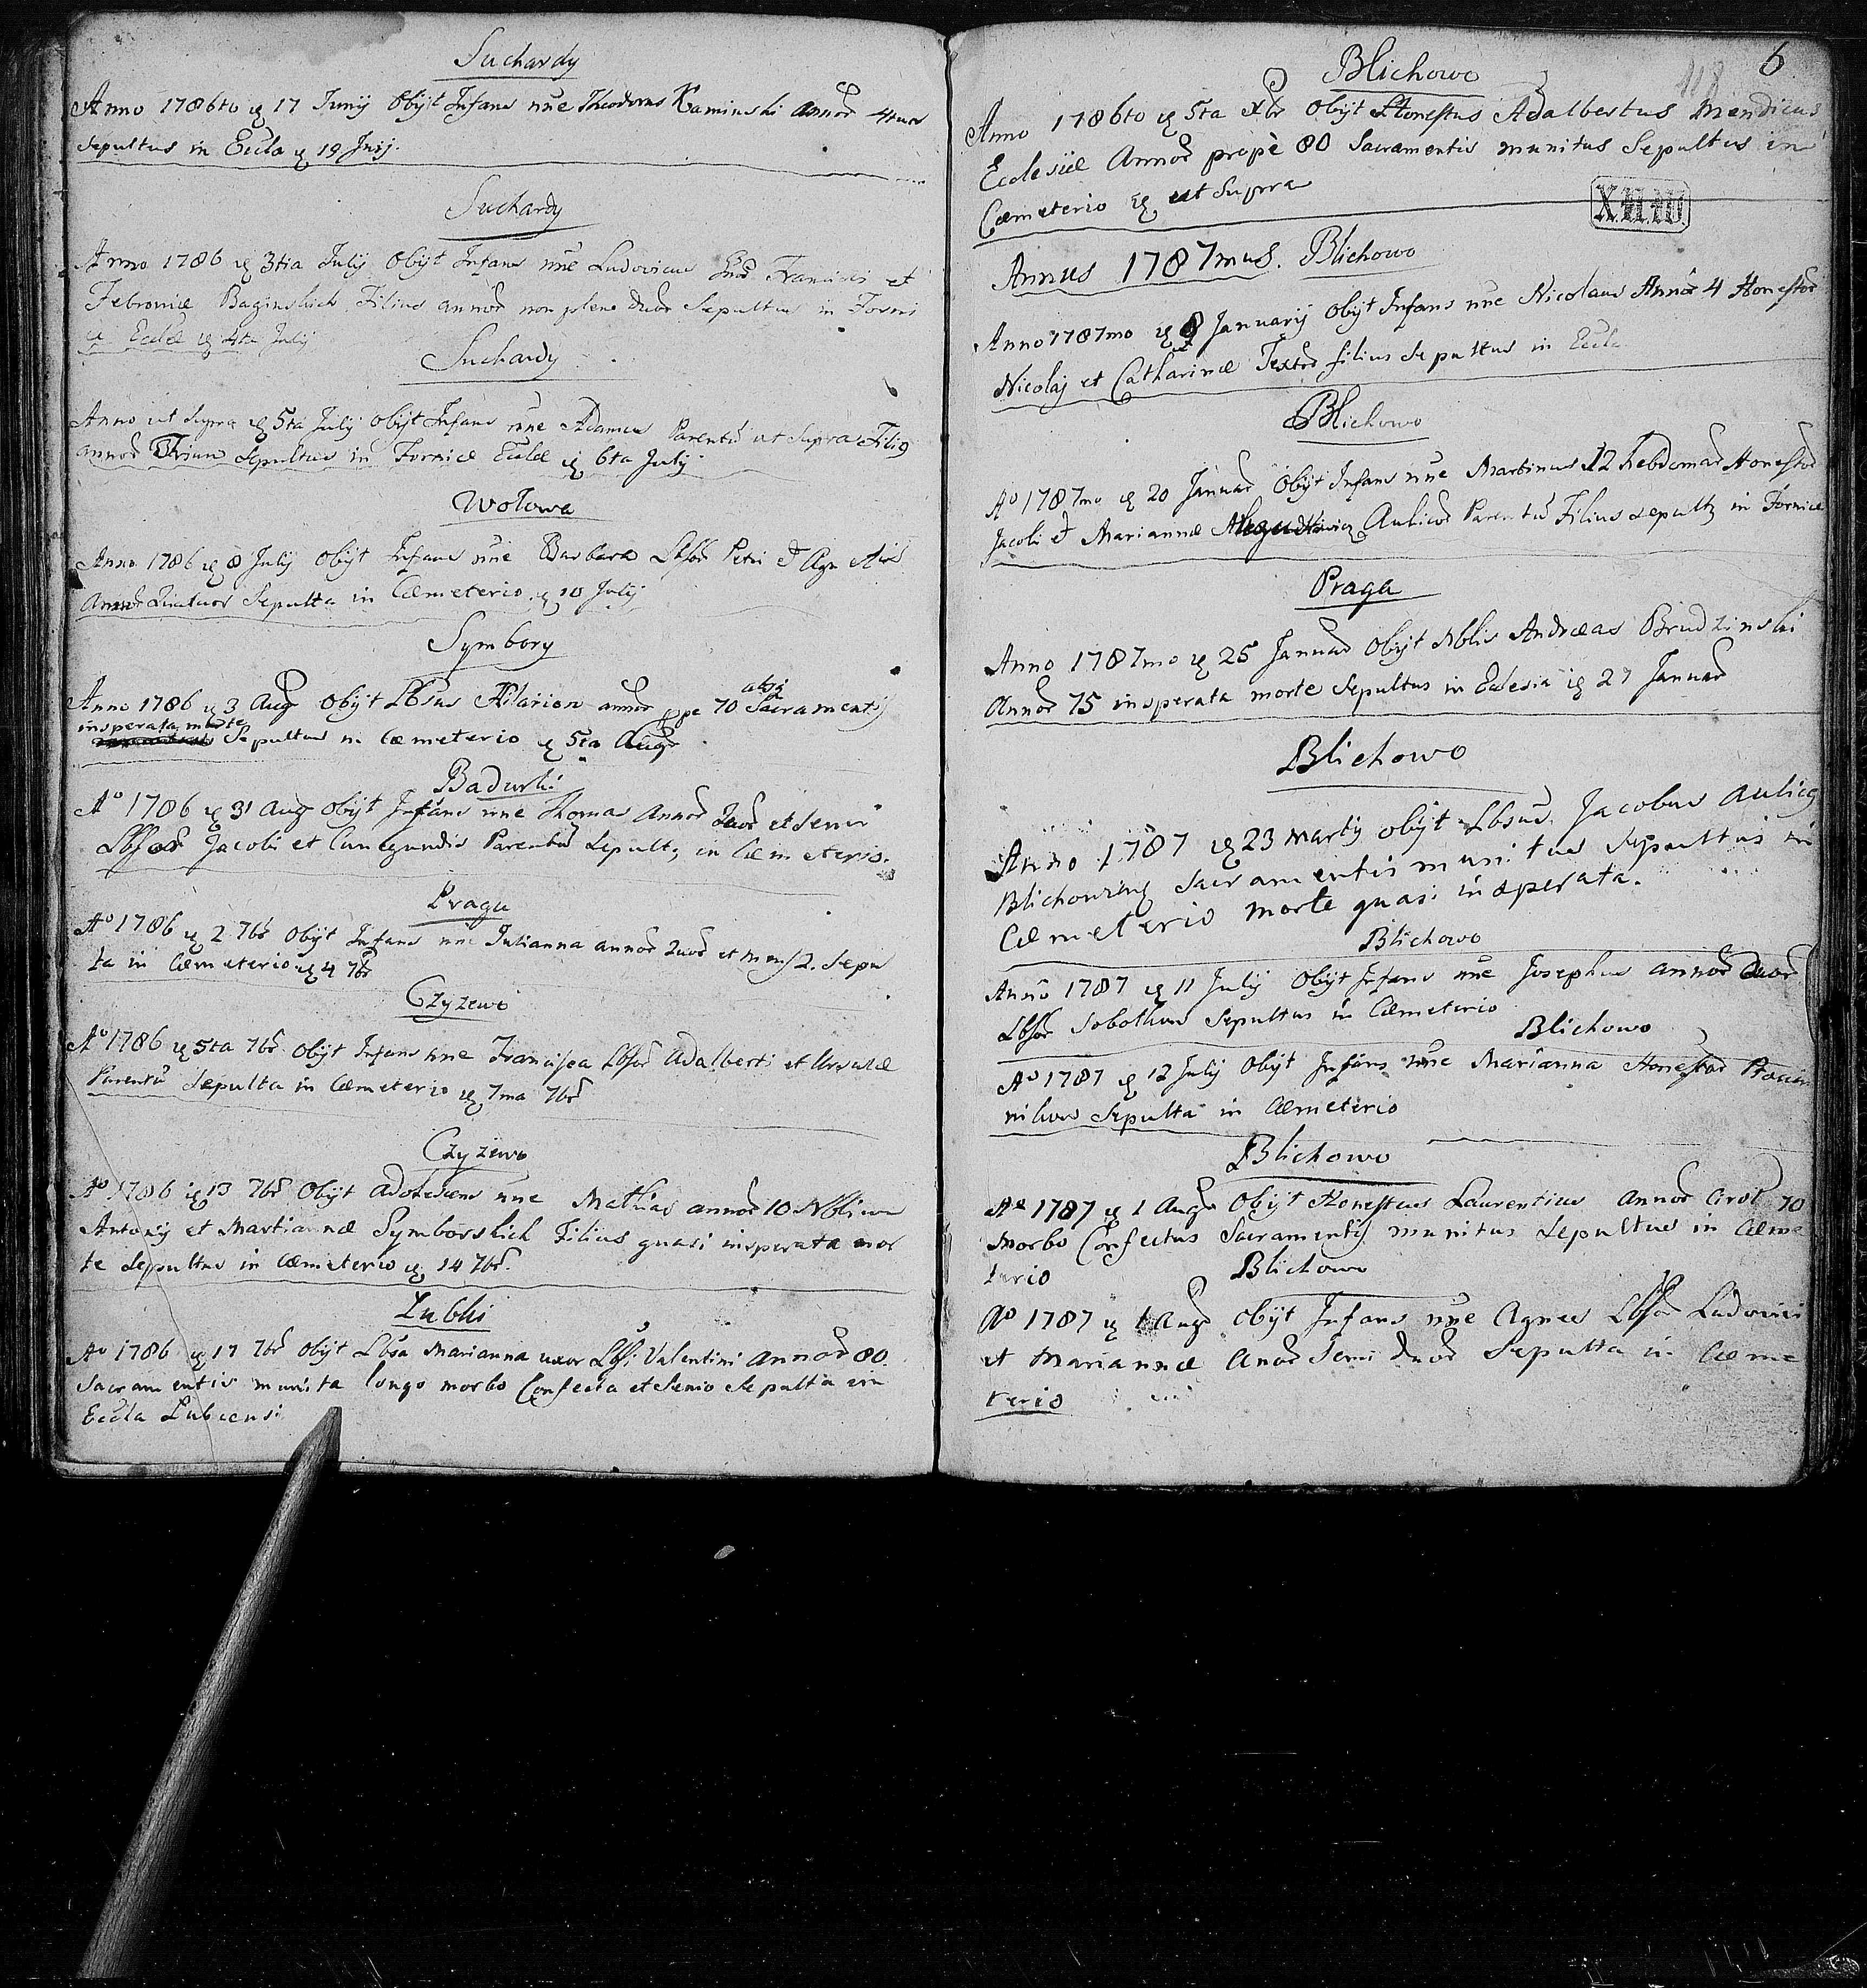 Suchardy
Anno 1786to ꝗ 17 Junij Obijt Infans nn̄e Theodorus Kaminski Annor 4tuor
Sepultus in Eccla ꝗ 19 Junij.
Suchardy
Anno 1786 ꝗ 3tia Julij Obijt Infans nn̄e Ludovicus Francisci et
Febroniæ Baginskich Filius annor non plene duor Sepultus in Forni
Ecclæ ꝗ 4ta Julij
Suchardy
Anno ut Supra ꝗ 5ta Julij Obijt Infans nn̄e Adamus Parentū ut Supra Filig
annor Trium Sepultus in Fornice Ecclæ ꝗ 6ta Julij
Wolowa
Anno 1786 ꝗ 8 Julij Obijt Infans nn̄e Barbara Lbsor Petri et Agn
Annor Quatuor Sepulta in Cæmeterio ꝗ 10 Julij
Symbory
Anno 1786 ꝗ 3 Aug Obijt Lbsus Hilarion annor ppe 70 absq Sacramentij
insperata morte Sepultus in Cæmeterio ꝗ 5ta Augr
Badurki
Aº 1786 ꝗ 31 Aug Obijt Infans nn̄e Thomas Annor 2uor et Semi
Lbsor Jacobi et Cunegundis Parentū Sepultꝫ in Cæmeterio.
Praga
Aº 1786 ꝗ 2 7br Obijt Infans nn̄e Julianna annor 2uor et Mens 2. Sepul
ta in Cæmeterio ꝗ 4 7br
Czyzewo
Aº 1786 ꝗ 5ta 7br Obijt Infans nn̄e Francisca Lbsor Adalberti et Ursulæ
Parentū Sepulta in Cæmeterio ꝗ 7ma 7br
Czyzewo
Aº 1786 ꝗ 13 7br Obijt Adolescens nn̄e Mathias annor 10 Nblium
Antonij et Martiannæ Symborskich Filius quasi insperata mor
te Sepultus in Cæmeterio ꝗ 14 7br.
Lubki
Aº 1786 ꝗ 17 7br Obijt Lbsa Marianna uxor Lbsi Valentini Annor 80.
Sacramentis munita longo morbo Confecta et Senio Sepulta in
Eccla Lubcensi
6
118
Blichowo
Anno 1786to ꝗ 5ta Xbr Obijt Honestus Adalbertus Mendicus
Ecclesiæ Annor propè 80 Sacramentis munitus Sepultus in
Cæmeterio ꝗ ut Supra
Annus 1787mus. Blichowo
Anno 1787mo ꝗ 9 Januarij Obijt Infans nn̄e Nicolaus Annor 4 Honestor
Nicolaj et Catharinæ Textor filius Sepultus in Eccla
Blichowo
Aº 1787mo ꝗ 20 Januar Obijt Infans nn̄e Martinus 12 hebdomar Honestor
Jacobi et Mariannæ Aulicor Parentū Filius Sepultꝫ in Fornice
Praga
Anno 1787mo ꝗ 25 Januar Obijt Nblis Andræas Brudzinski
Annor 75 insperata morte Sepultus in Eclesia ꝗ 27 Januar
Blichowo
Anno 1787 ꝗ 23 Martij Obijt Lbsus. Jacobus Aulicꝗ
Blichoviens Sacramentis munitus Sepultus in
Cæmeterio morte quasi insperata.
Blichowo
Anno 1787 ꝗ 11 Julij Obijt Infans nn̄e Josephus annor Duor
Lbsor Sobothow Sepultus in Cæmeterio
Blichowo
Aº 1787 ꝗ 12 Julij Obijt Infans nn̄e Marianna Honestor
nikow Sepulta in Cæmeterio
Blichowo
Aº 1787 ꝗ 1 Augr Obijt Honestus Laurentius Annor Circit 70
Morbo Confectus Sacramentis munitus Sepultus in Cæme
terio
Blichowo
Aº 1787 ꝗ 1 Augr Obijt Infans nn̄e Agnes Lbsor Ludovici
et Mariannæ Anor Semi Duor Sepulta in Cæme
terio